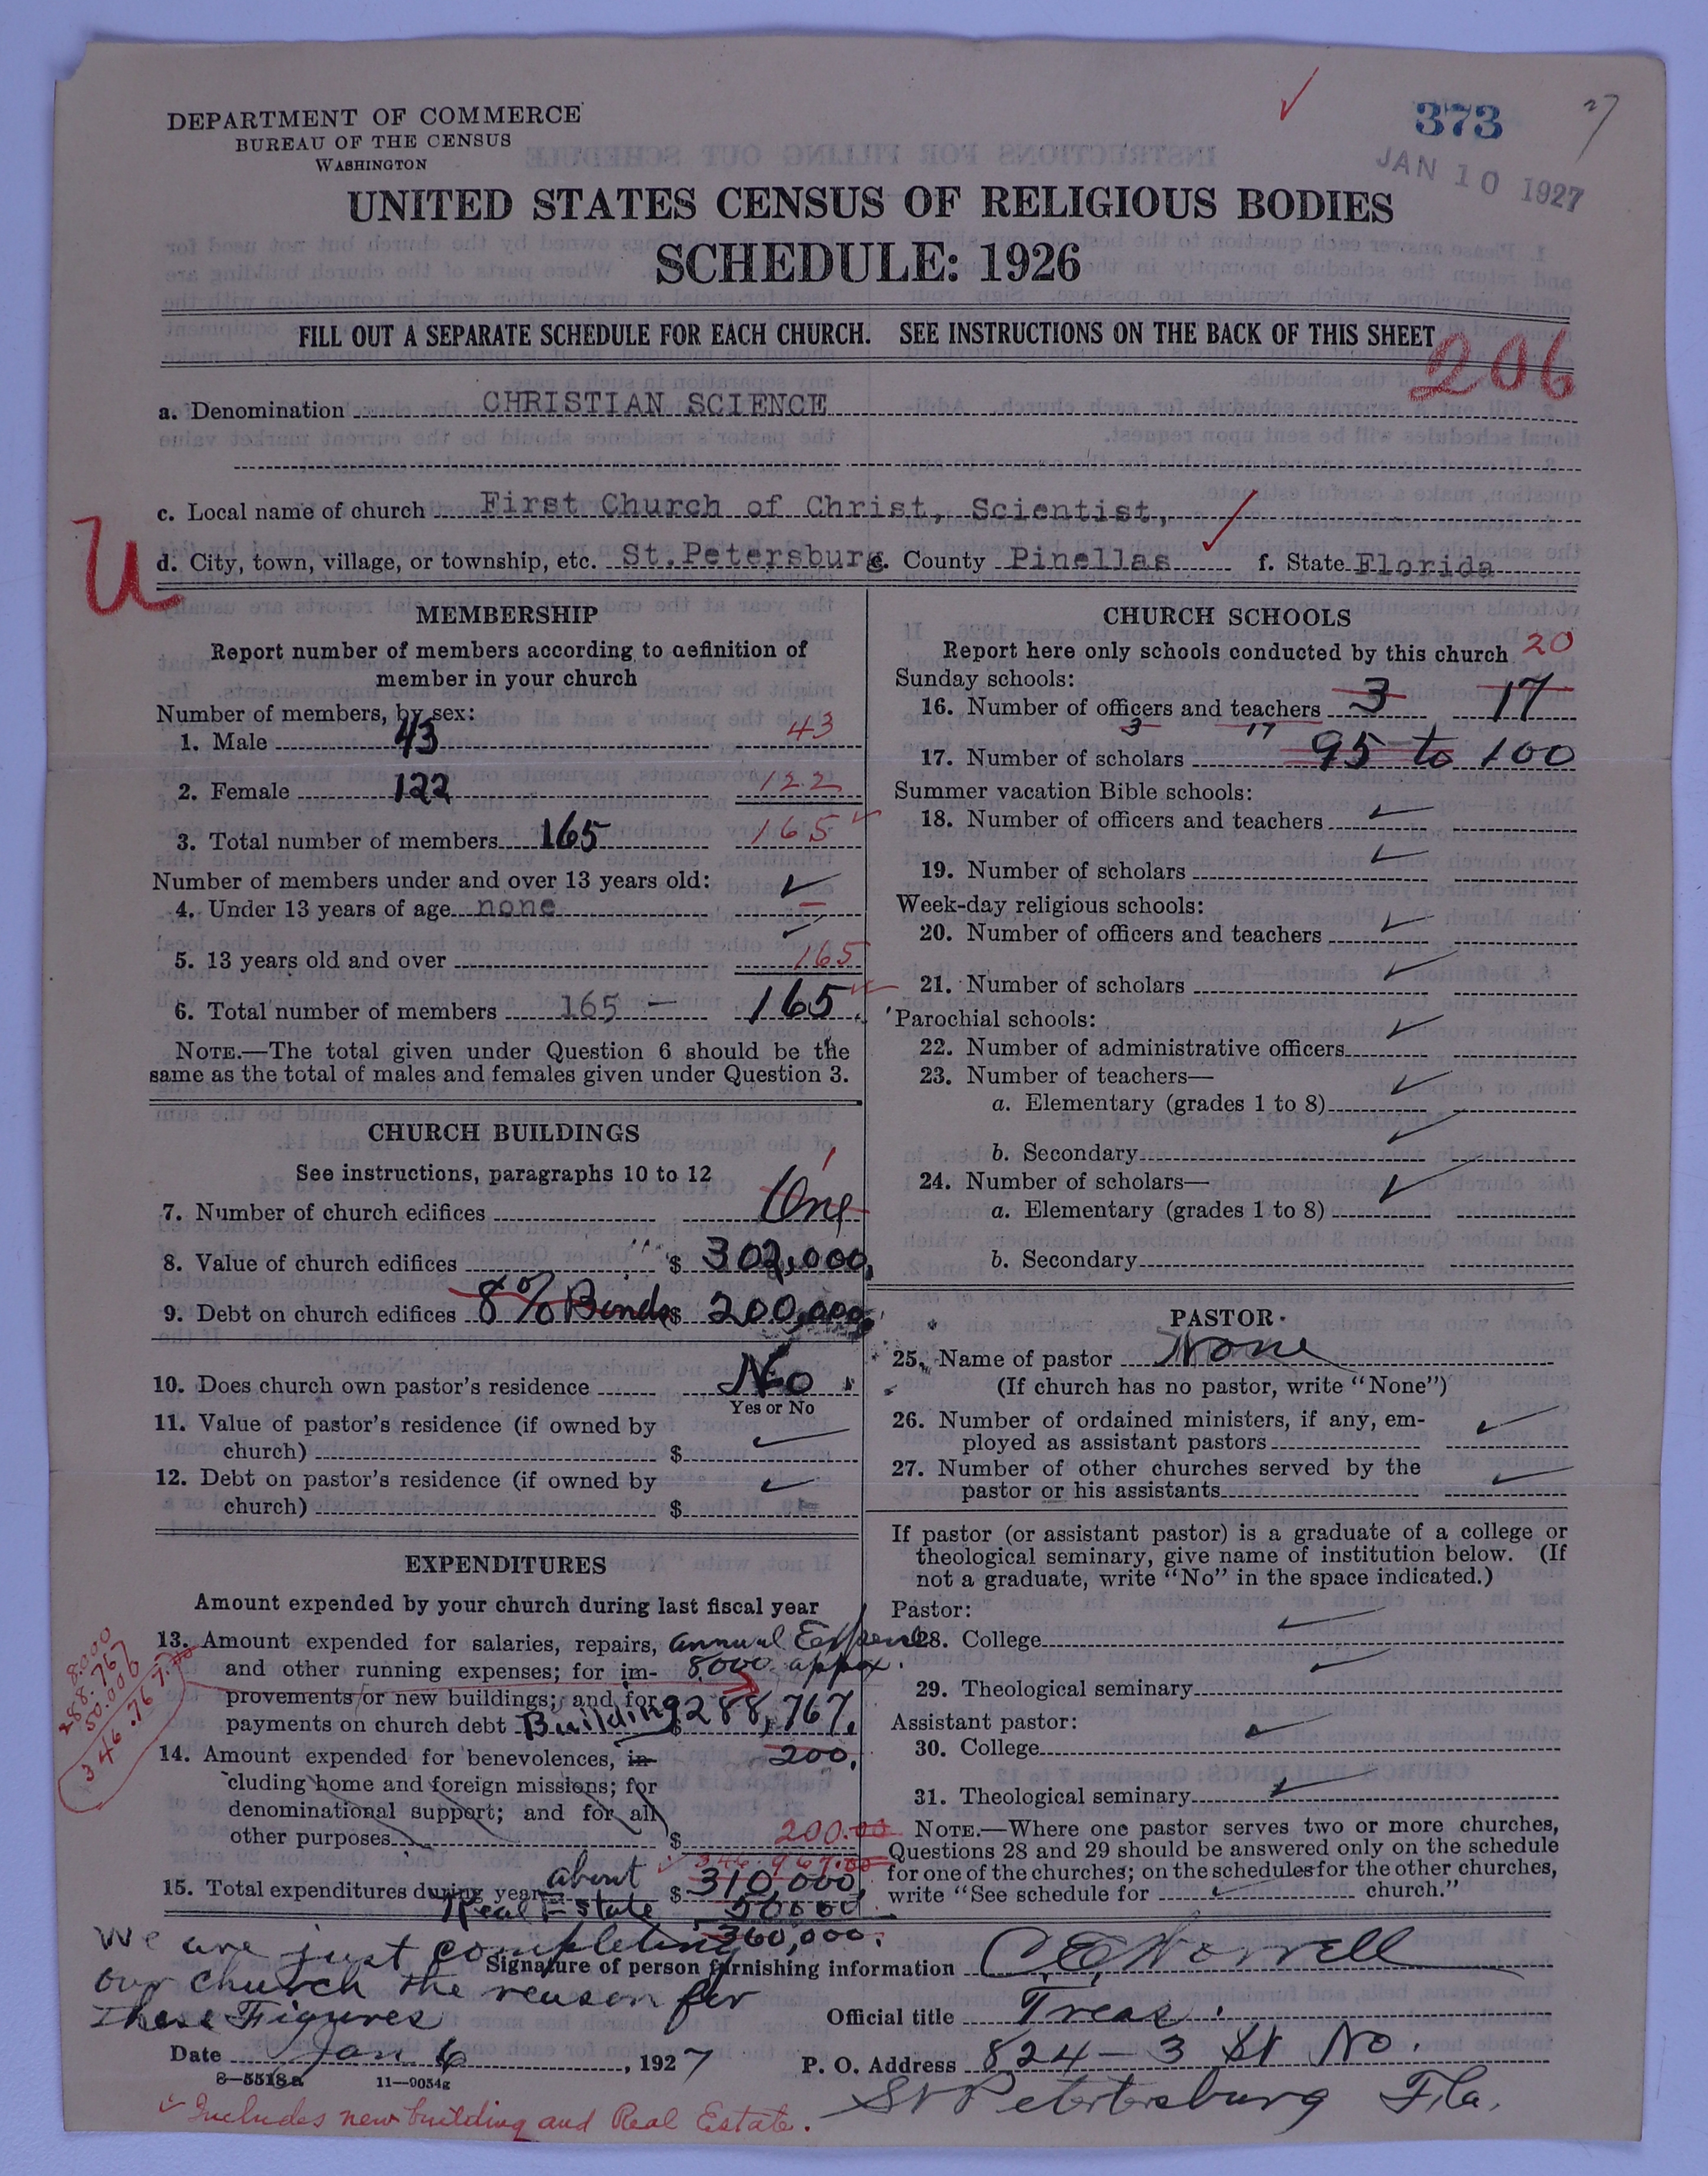 DEPARTMENT OF COMMERCE
BUREAU OF THE CENSUS
WASHINGTON
373
27
JAN 10 1927
UNITED STATES CENSUS OF RELIGIOUS BODIES
SCHEDULE: 1926
FILL OUT A SEPARATE SCHEDULE FOR EACH CHURCH. SEE INSTRUCTIONS ON THE BACK OF THIS SHEET
206
a. Denomination CHRISTIAN SCIENCE
c. Local name of church First Church of Christ, Scientist,
U
d. City, town, village, or township, etc. St.Petersburg e. County Pinellas f. State Florida
MEMBERSHIP
Report number of members according to definition of
member in your church
Number of members, by sex:
1. Male 43 43
2. Female 122 122
3. Total number of members 165 165
Number of members under and over 13 years old:
4. Under 13 years of age none
5. 13 years old and over 165
6. Total number of members 165 — 165
NOTE.—The total given under Question 6 should be the
same as the total of males and females given under Question 3.
CHURCH BUILDINGS
See instructions, paragraphs 10 to 12
7. Number of church edifices One 1
8. Value of church edifices $ 302,000.
9. Debt on church edifices 8% Bonds $ 200,000.
10. Does church own pastor's residence No
Yes or No
11. Value of pastor's residence (if owned by
church) $
12. Debt on pastor's residence (if owned by
church) $
EXPENDITURES
Amount expended by your church during last fiscal year
13. Amount expended for salaries, repairs, annual Expense
and other running expenses; for im- 8000 appox.
provements or new buildings; and for
payments on church debt Building $ 288,767.
8.000
288.767
50.000
346.767.00
14. Amount expended for benevolences, in- 200.
cluding home and foreign missions; for
denominational support; and for all
other purposes $ 200.00
346.967.00
15. Total expenditures during year about $ 310,000
Real Estate 50000
360,000.
CHURCH SCHOOLS
Report here only schools conducted by this church 20
Sunday schools:
16. Number of officers and teachers 3 17
3 17
17. Number of scholars 95 to 100
Summer vacation Bible schools:
18. Number of officers and teachers
19. Number of scholars
Week-day religious schools:
20. Number of officers and teachers
21. Number of scholars
Parochial schools:
22. Number of administrative officers
23. Number of teachers—
a. Elementary (grades 1 to 8)
b. Secondary
24. Number of scholars—
a. Elementary (grades 1 to 8)
b. Secondary
PASTOR
25. Name of pastor None
(If church has no pastor, write "None")
26. Number of ordained ministers, if any, em-
ployed as assistant pastors
27. Number of other churches served by the
pastor or his assistants
If pastor (or assistant pastor) is a graduate of a college or
theological seminary, give name of institution below. (If
not a graduate, write "No" in the space indicated.)
Pastor:
28. College
29. Theological seminary
Assistant pastor:
30. College
31. Theological seminary
NOTE.—Where one pastor serves two or more churches,
Questions 28 and 29 should be answered only on the schedule
for one of the churches; on the schedules for the other churches,
write "See schedule for church."
We are just completing
our church the reason for
these Figures
Signature of person furnishing information C E Norrell
Official title Treas.
Date Jan 6, 1927
P. O. Address 824 - 3 St No.
St Petertsburg Fla.
8—5518a 11—9054g
Includes new building and Real Estate.